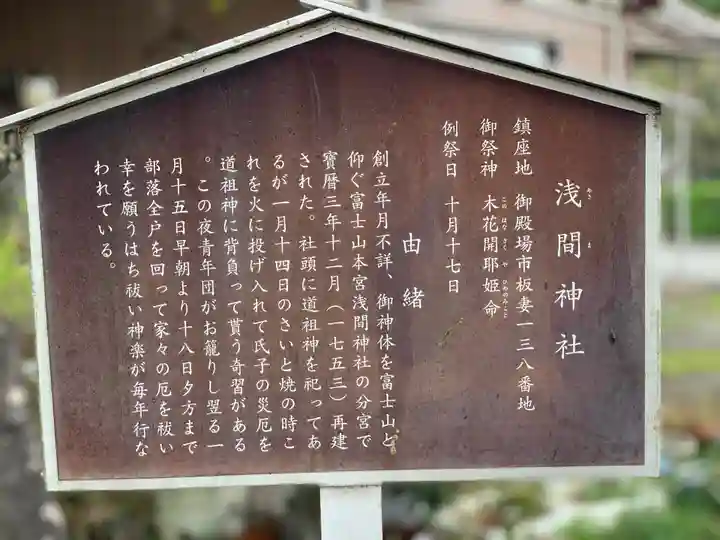 浅間神社
あさま
鎮座地 御殿場市板妻一三八番地
御祭神 木花開耶姫命
このはなさくやひめのみこと
例祭日 十月十七日
由緒
創立年月不詳、御神体を富士山と
仰ぐ富士山本宮浅間神社の分宮で
寳暦三年十二月（一七五三）再建
された。社頭に道祖神を祀ってあ
るが一月十四日のさいと焼の時こ
れを火に投げ入れて氏子の災厄を
道祖神に背負って貰う奇習がある
。この夜青年団がお籠りし翌る一
月十五日早朝より十八日夕方まで
部落全戸を回って家々の厄を祓い
幸を願うはち祓い神楽が毎年行な
われている。